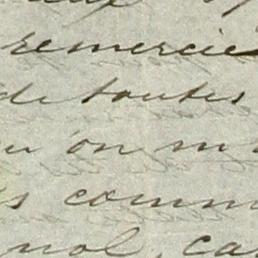 remercie
de toutes
qu'on m
s comm
nol, ca